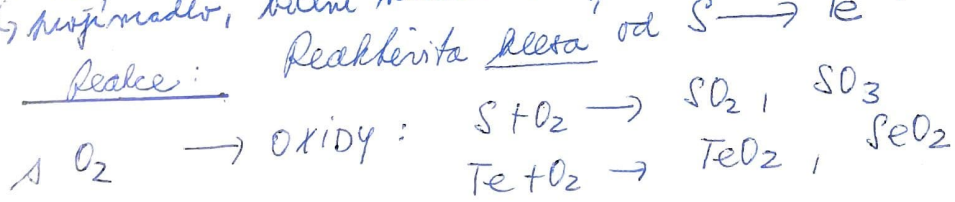 → krojímadlo,
Reakce: Reaktivita klesá od S → Te
s O2 → OXIDY: S + O2 → SO2, SO3
Te + O2 → TeO2, SeO2